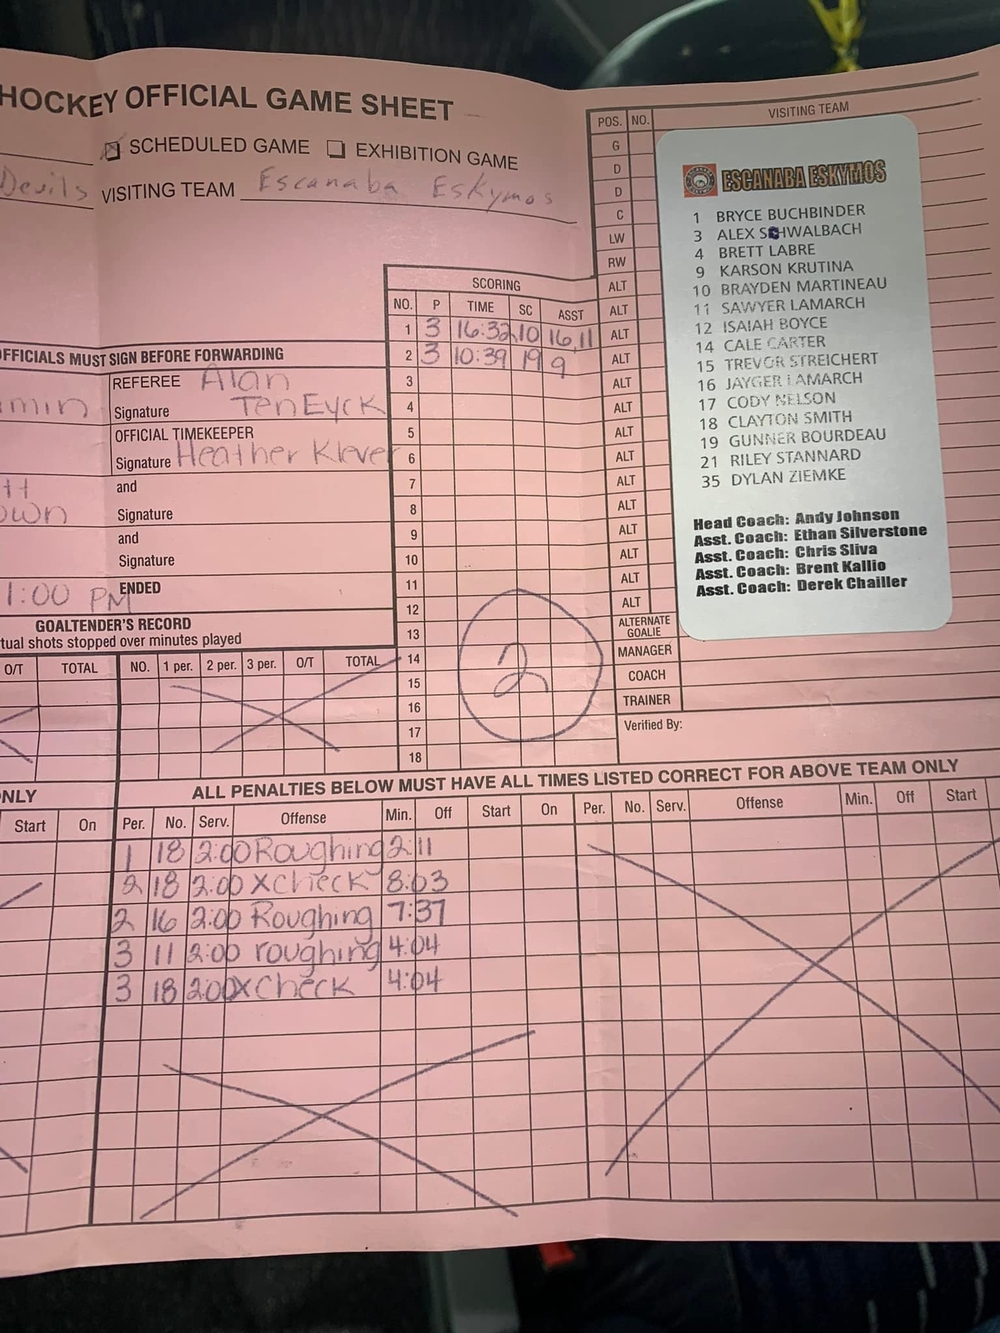 HOCKEY OFFICIAL GAME SHEET
SCHEDULED GAME EXHIBITION GAME
Devils VISITING TEAM Escanaba Eskymos
POS. NO. VISITING TEAM
G
D
D
C
LW
RW
ALT
ALT
ALT
ALT
ALT
ALT
ALT
ALT
ALT
ALT
ALT
ALT
ALT
ALT
ALTERNATE GOALIE
MANAGER
COACH
TRAINER
Verified By:
ESCANABA ESKYMOS
1 BRYCE BUCHBINDER
3 ALEX SCHWALBACH
4 BRETT LABRE
9 KARSON KRUTINA
10 BRAYDEN MARTINEAU
11 SAWYER LAMARCH
12 ISAIAH BOYCE
14 CALE CARTER
15 TREVOR STREICHERT
16 JAYGER LAMARCH
17 CODY NELSON
18 CLAYTON SMITH
19 GUNNER BOURDEAU
21 RILEY STANNARD
35 DYLAN ZIEMKE
Head Coach: Andy Johnson
Asst. Coach: Ethan Silverstone
Asst. Coach: Chris Sliva
Asst. Coach: Brent Kallio
Asst. Coach: Derek Chailler
SCORING
NO. P TIME SC ASST
1 3 16:32 10 16,11
2 3 10:39 19 9
3
4
5
6
7
8
9
10
11
12
13
14
15
16
17
18
2
OFFICIALS MUST SIGN BEFORE FORWARDING
REFEREE Alan
min Signature TenEyck
OFFICIAL TIMEKEEPER
Signature Heather Klever
tt and
own Signature
and
Signature
1:00 PM ENDED
GOALTENDER'S RECORD
tual shots stopped over minutes played
O/T TOTAL NO. 1 per. 2 per. 3 per. O/T TOTAL
NLY ALL PENALTIES BELOW MUST HAVE ALL TIMES LISTED CORRECT FOR ABOVE TEAM ONLY
Start On Per. No. Serv. Offense Min. Off Start On Per. No. Serv. Offense Min. Off Start
1 18 2:00 Roughing 2:11
2 18 2:00 XCheck 8:03
2 16 2:00 Roughing 7:37
3 11 2:00 roughing 4:04
3 18 2:00 XCheck 4:04